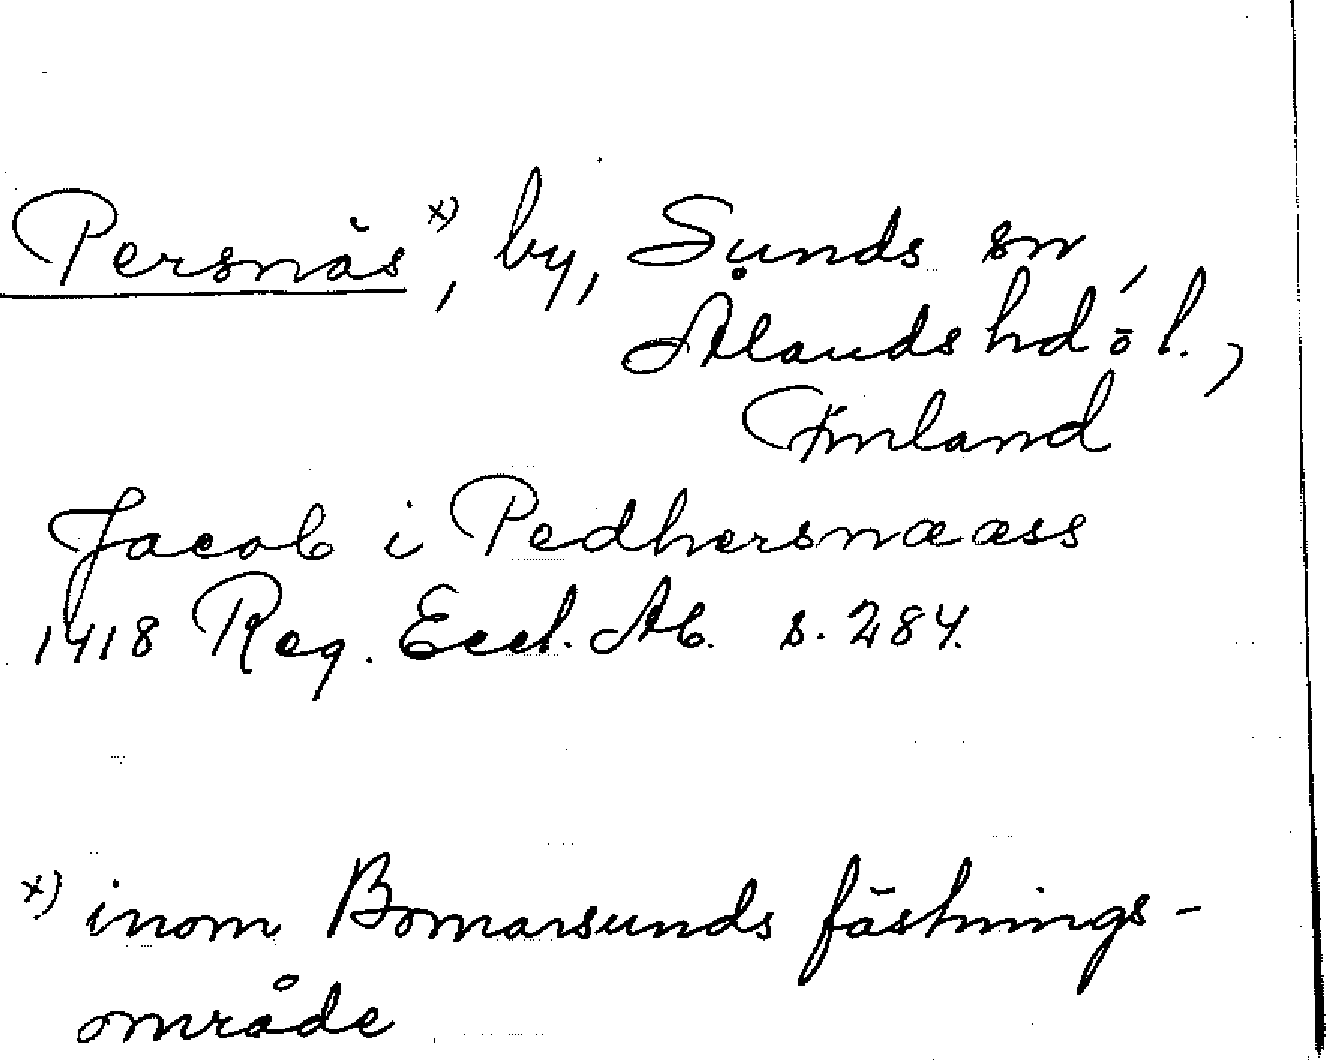 Persnäs x), by, Sunds sn,
Ålands hd ö l.,
Finland
Jacob i Pedhersnææss
1418 Reg. Eccl. Ab. s. 284.
x) inom Bomarsunds fästnings-
område